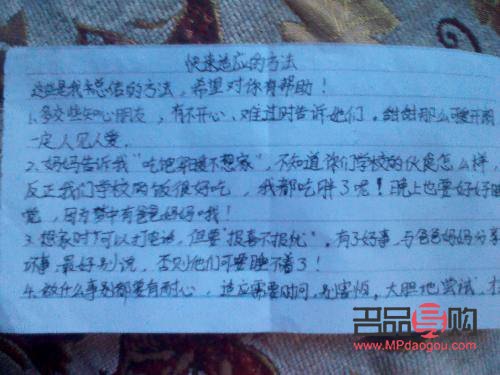 快速适应的方法
这些是我来总结的方法，希望对你有帮助！
1.多交些知心朋友，有不开心、难过时告诉她们。甜甜那么可爱开朗
一定人见人爱。
2.妈妈告诉我"吃饱穿暖不想家"，不知道你们学校的伙食怎么样，
反正我们学校的饭很好吃，我都吃胖了呢！晚上也要好好睡
觉，因为梦中有爸爸妈妈哦！
3.想家时可以打电话，但要"报喜不报忧"。有了好事，与爸爸妈妈分享
坏事，最好别说，否则他们可要睡不着了！
4.做什么事别都要有耐心，适应需要时间，别害怕，大胆地尝试，
名品导购
www.MPdaogou.com